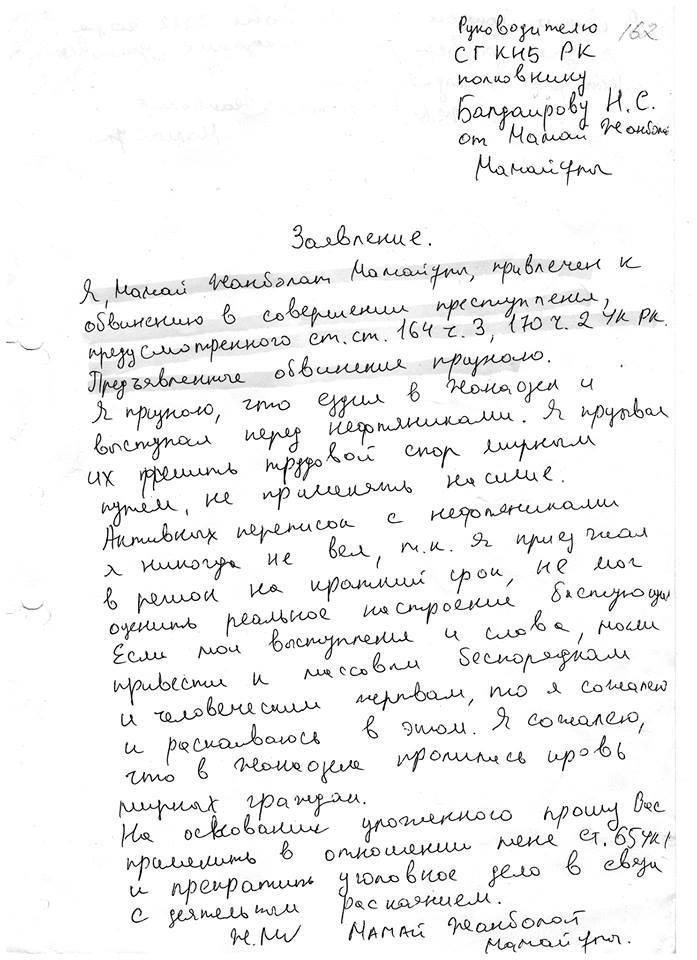 Руководителю 162
СГ КНБ РК
полковнику
Бапдаирову Н. С.
от Мамай Жанболат
Мамайұлы
Заявление.
Я, Мамай Жанболат Мамайұлы, привлечен к
обвинению в совершении преступления,
предусмотренного ст.ст. 164 ч. 3, 170 ч. 2 УК РК.
Предъявленное обвинение признаю.
Я признаю, что ездил в Жанаозен и
выступал перед нефтяниками. Я призывал
их решить трудовой спор мирным
путем, не применять насилие.
Активных переписок с нефтяниками
я никогда не вел, т.к. я приезжал
в регион на краткий срок, не мог
оценить реальное настроение бастующих
Если мои выступления и слова, могли
привести к массовым беспорядкам
и человеческим жертвам, то я сожалею
и раскаиваюсь в этом. Я сожалею,
что в Жанаозене пролилась кровь
мирных граждан.
На основании изложенного прошу Вас
применить в отношении меня ст. 65 УК
и прекратить уголовное дело в связи
с деятельным раскаянием.
Ж.М МАМАЙ Жанболат
Мамайұлы.